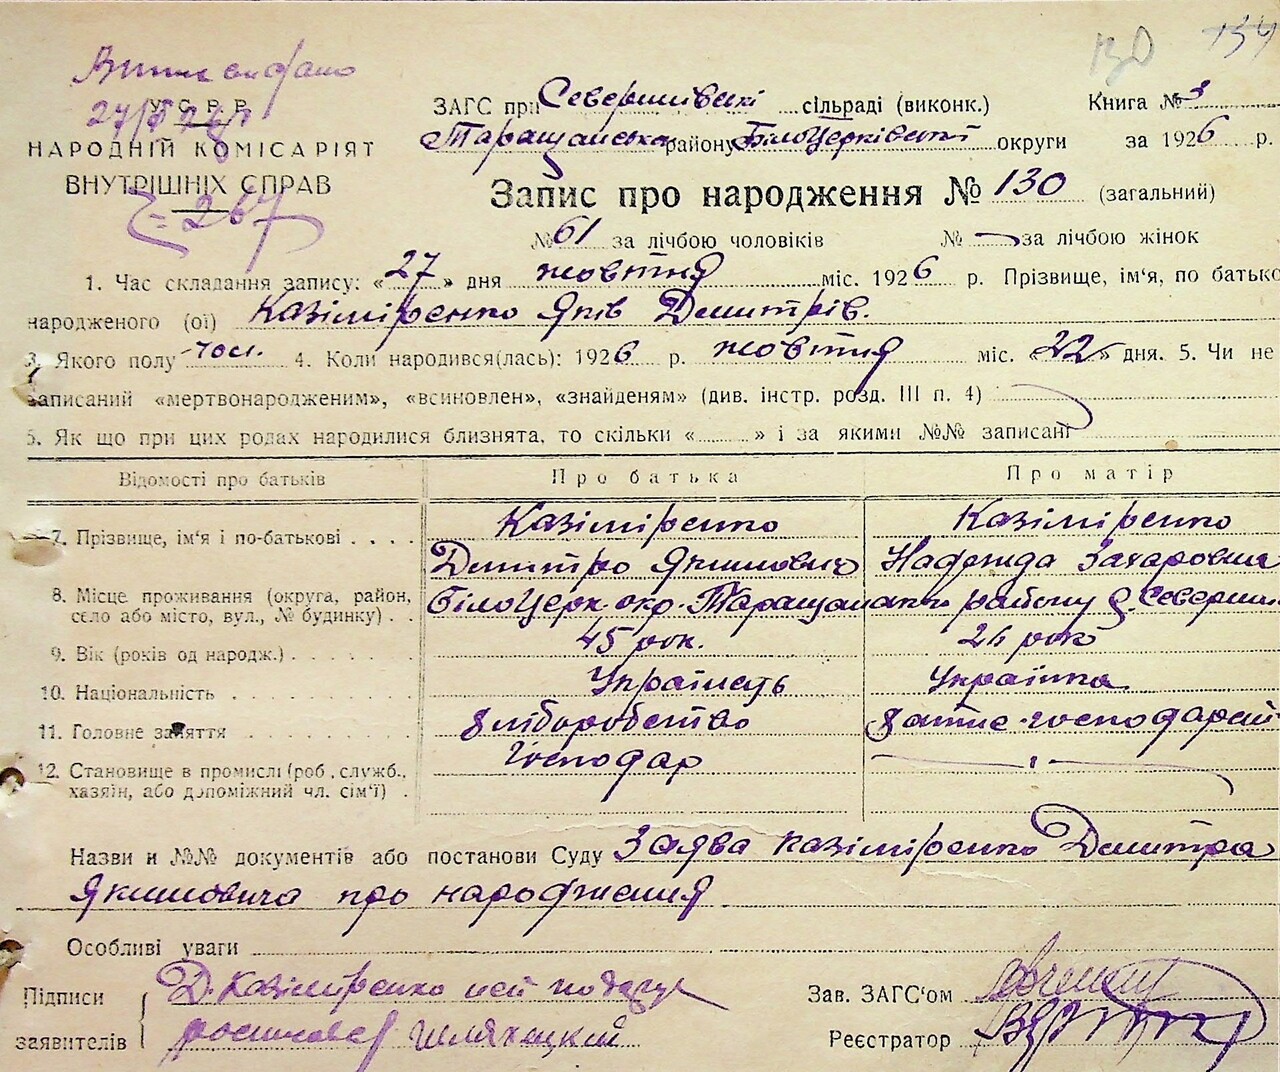 130 134
Виписандано
27/
У.С.Р.Р.
НАРОДНІЙ КОМІСАРІЯТ
ВНУТРІШНІХ СПРАВ
267
ЗАГС при Северинівскі сільраді (виконк.) Книга № 3
Таращанська району Білоцерківскі округи за 1926 р.
Запис про народження № 130 (загальний)
№ 61 за лічбою чоловіків № — за лічбою жінок
1. Час складання запису: « 27 » дня жовтня міс. 1926 р. Прізвище, ім'я, по батько
народженого (ої) Казіміренко Яків Дмитрів.
3. Якого полу чол. 4. Коли народився(лась): 1926 р. жовтня міс. «22» дня. 5. Чи не
записаний «мертвонародженим», «всиновлен», «знайденям» (див. інстр. розд. III п. 4)
6. Як що при цих родах народилися близнята, то скільки « » і за якими №№ записані
Відомості про батьків Про батька Про матір
7. Прізвище, ім'я і по-батькові . . . . Казіміренко Казіміренко
Дмитро Якимович Надежда Захаровна
8. Місце проживання (округа, район, Білоцерк. окр. Таращанського району с. Северин
село або місто, вул., № будинку) . .
9. Вік (років од народж.) 45 рок. 26 рок
10. Національність Українець Українка
11. Головне заняття хліборобство хатнє господарст
12. Становище в промислі (роб., служб., Господар
хазяїн, або допоміжний чл. сім'ї) .
Назви и №№ документів або постанови Суду Заява Казіміренко Дмитра
Якимовича про народження
Особливі уваги
Підписи Д. Казіміренко
заявителів Шляхецкий
Зав. ЗАГС'ом
Реєстратор